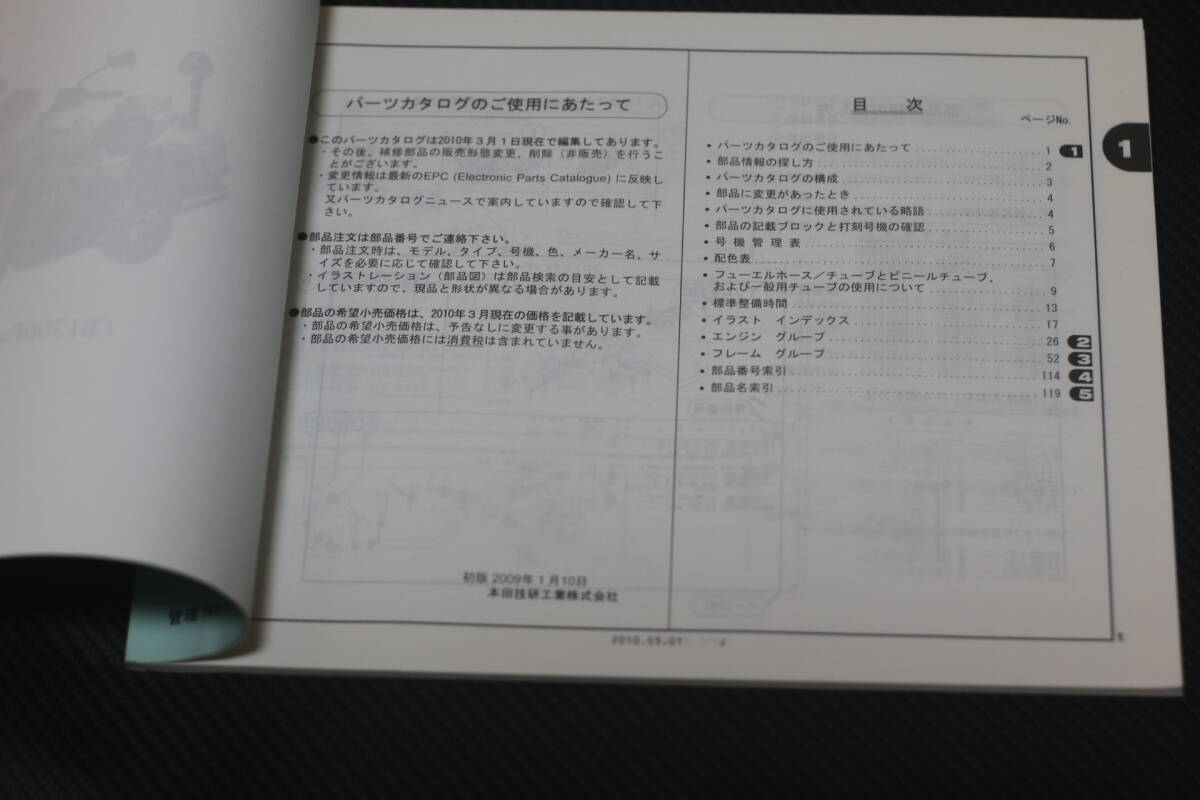 パーツカタログのご使用にあたって
●このパーツカタログは2010年3月1日現在で編集してあります。
・その後、補修部品の販売形態変更、削除（非販売）を行うこ
とがございます。
・変更情報は最新のEPC (Electronic Parts Catalogue) に反映し
ています。
又パーツカタログニュースで案内していますので確認して下
さい。
●部品注文は部品番号でご連絡下さい。
・部品注文時は、モデル、タイプ、号機、色、メーカー名、サ
イズを必要に応じて確認して下さい。
・イラストレーション（部品図）は部品検索の目安として記載
していますので、現品と形状が異なる場合があります。
●部品の希望小売価格は、2010年3月現在の価格を記載しています。
・部品の希望小売価格は、予告なしに変更する事があります。
・部品の希望小売価格には消費税は含まれていません。
初版 2009年1月10日
本田技研工業株式会社
目 次
ページNo.
• パーツカタログのご使用にあたって 1 1
• 部品情報の探し方 2
• パーツカタログの構成 3
• 部品に変更があったとき 4
• パーツカタログに使用されている略語 4
• 部品の記載ブロックと打刻号機の確認 5
• 号機管理表 6
• 配色表 7
• フューエルホース／チューブとビニールチューブ、
および一般用チューブの使用について 9
• 標準整備時間 13
• イラスト インデックス 17
• エンジン グループ 26 2
• フレーム グループ 52 3
• 部品番号索引 114 4
• 部品名索引 119 5
1
2010.03.01 J
1
管理